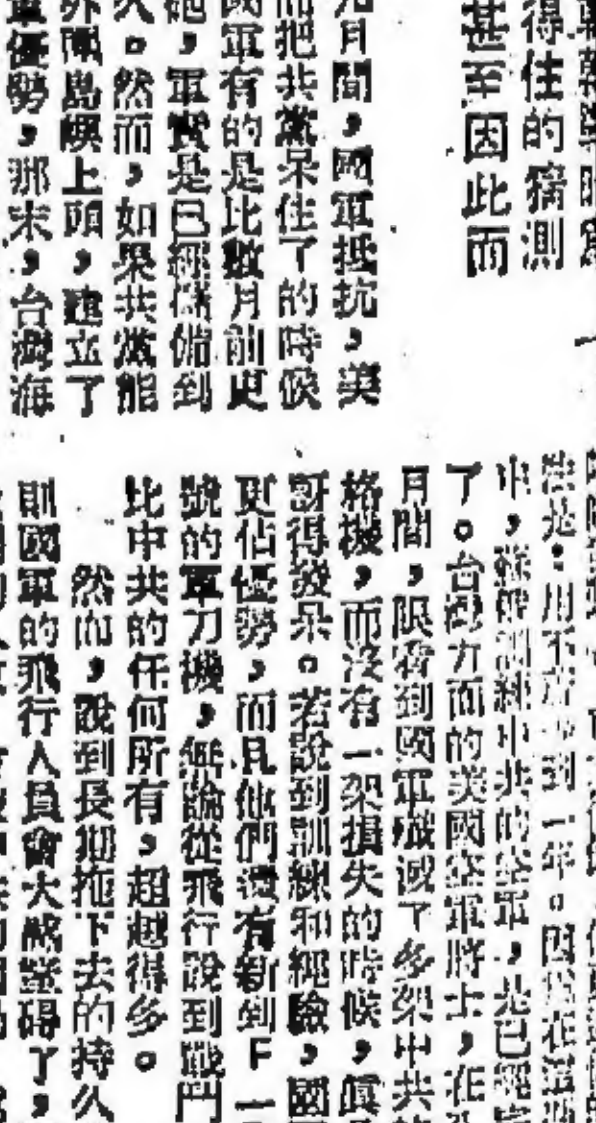 得住的猜測
甚至因此而
月間，國軍抵抗，美
而把共黨呆住了的時候
國軍有的是比數月前更
砲，軍實是已經儲備到
久。然而，如果共黨能
外圍島嶼上頭，建立了
優勢，那末，台灣海
法是：用不着到一年。因為在這
中，強健訓練中共的空軍，是已經
了。台灣方面的美國空軍將士，在
月間，眼看到國軍殲滅了多架中共
格機，而沒有一架損失的時候，真
訝得發呆。若說到訓練和經驗，國
更佔優勢，而且他們還有新到F一
號的軍刀機，無論從飛行說到戰鬥
比中共的任何所有，超越得多。
然而，說到長期拖下去的持久
則國軍的飛行人員會大感窒碍了，